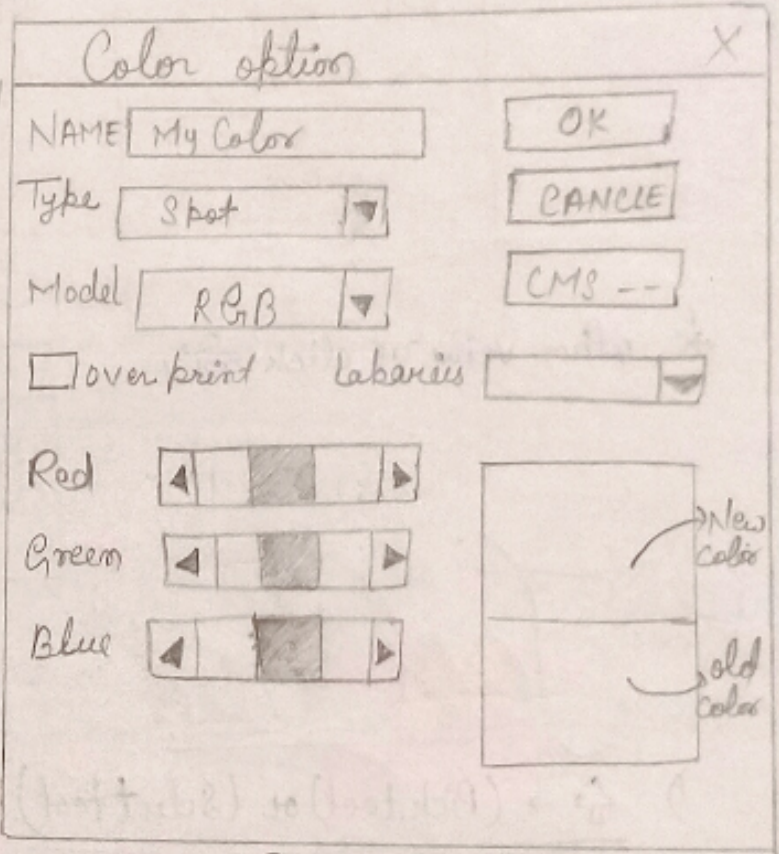 Color option X
NAME My Color OK
Type Spot CANCLE
Model RGB CMS --
over print Labaries
Red
New
color
Green
Blue
old
color